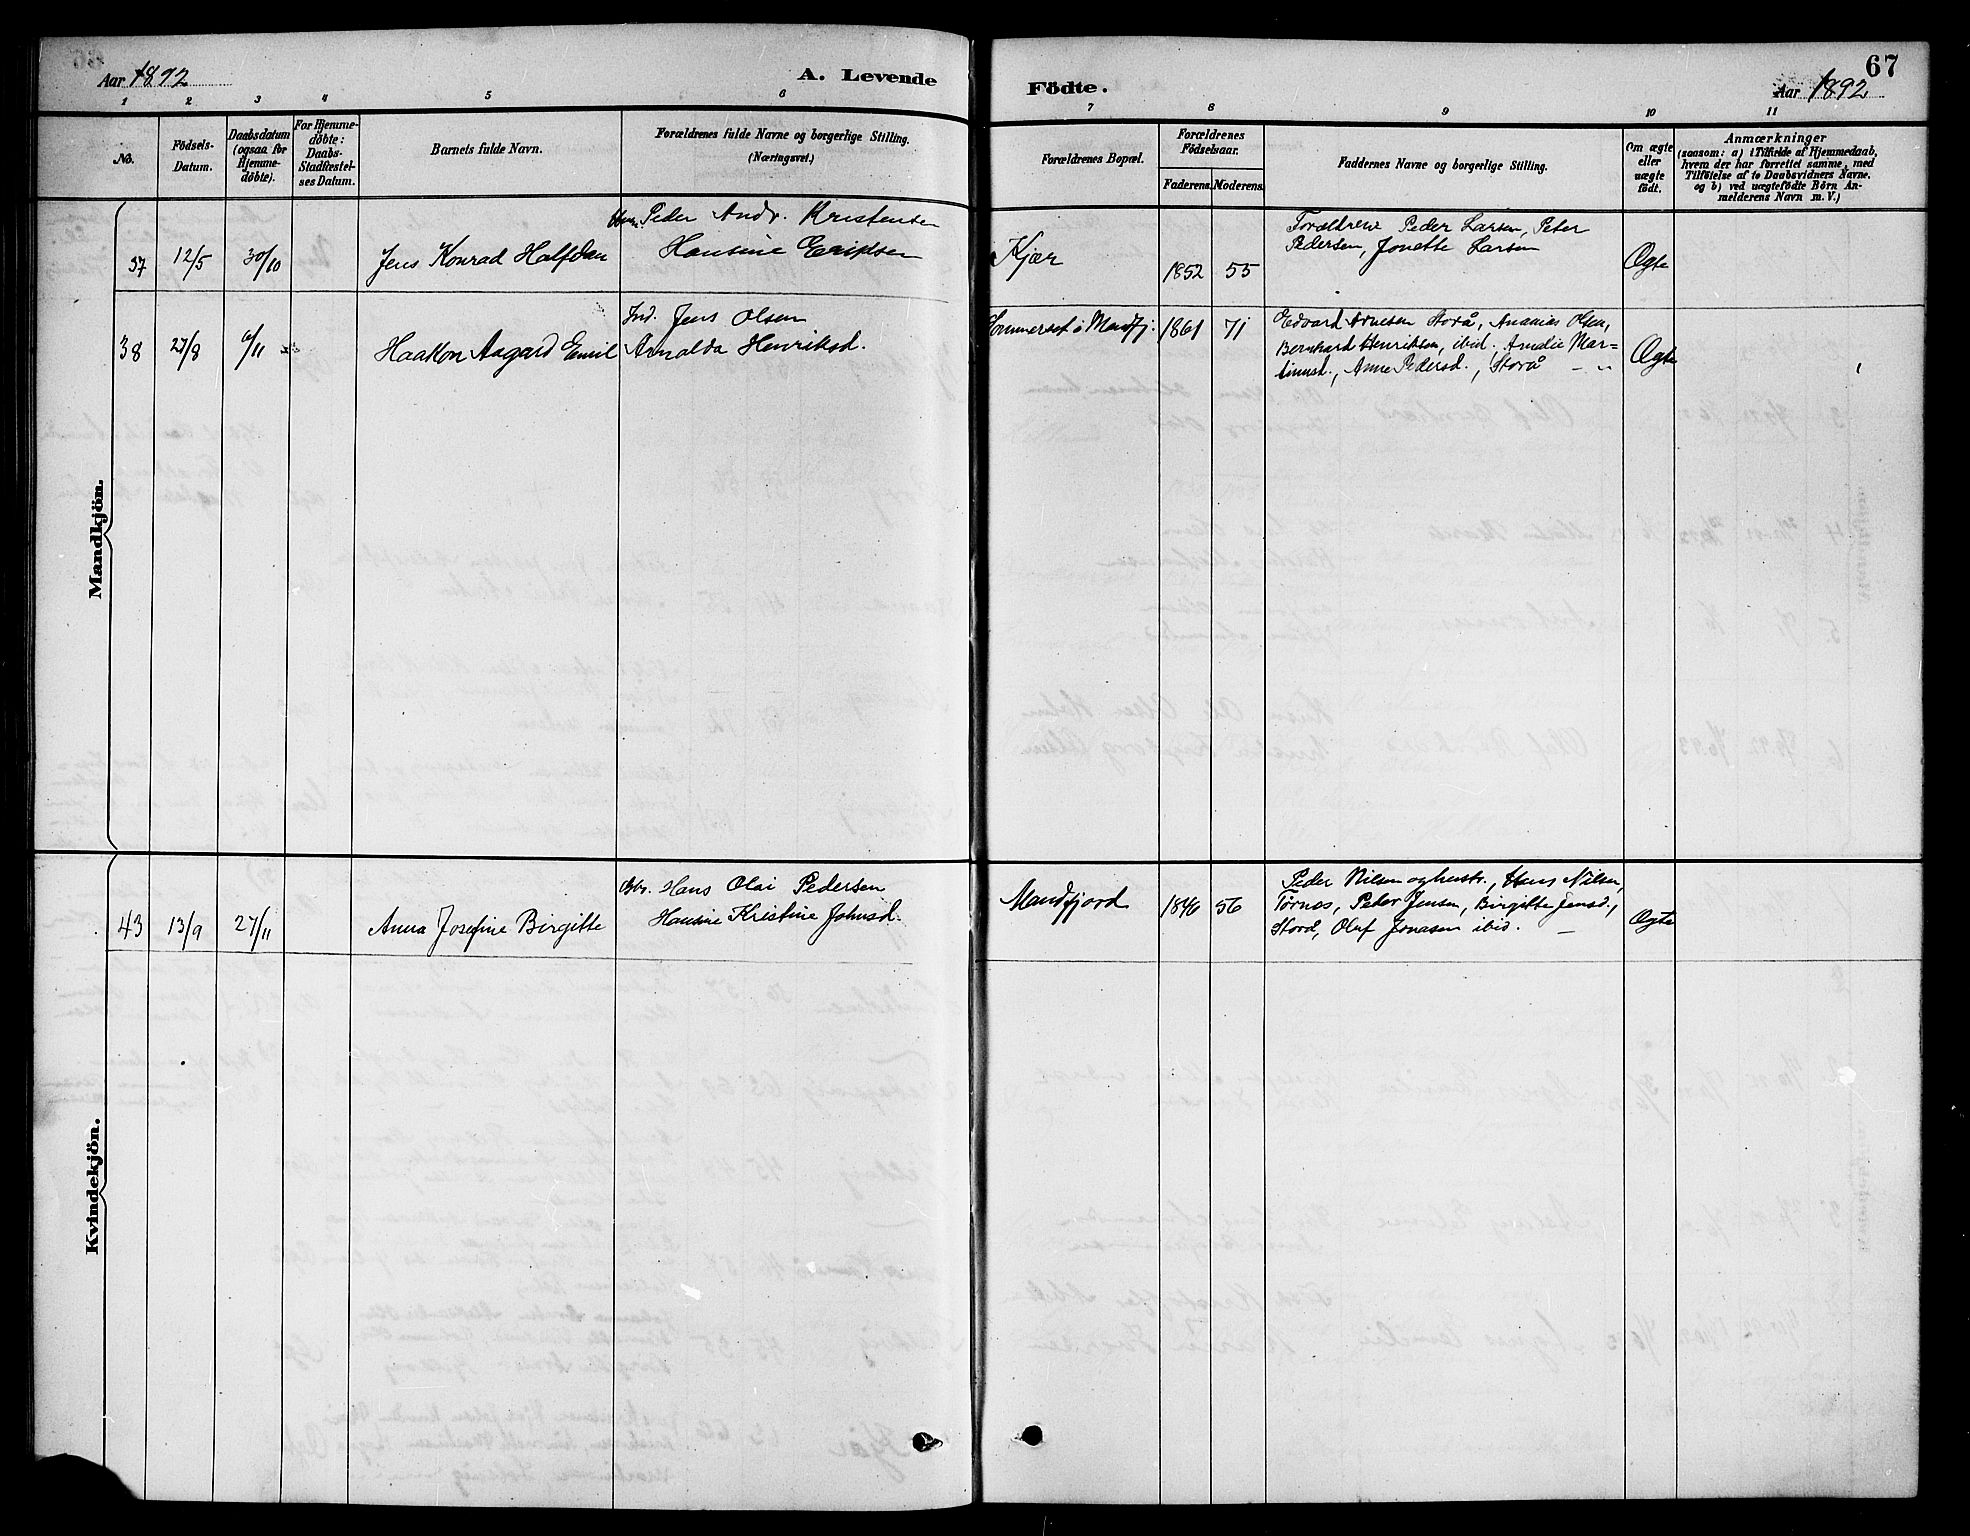 Aar 1892
A. Levende
Födte.
Aar 1892
67
1 2 3 4 5 6 7 8 9 10 11
No.
Födsels-
Datum.
Daabsdatum
(ogsaa for
Hjemme-
döbte).
For Hjemme-
döbte:
Daabs-
Stadfæstel-
ses Datum.
Barnets fulde Navn.
Forældrenes fulde Navne og borgerlige Stilling.
(Næringsvei.)
Forældrenes Bopæl.
Forældrenes
Födselsaar.
Faderens. Moderens.
Faddernes Navne og borgerlige Stilling.
Om ægte
eller
uægte
födt.
Anmærkninger
(saasom: a) i Tilfælde af Hjemmedaab,
hvem der har forrettet samme, med
Tilföielse af to Daabsvidners Navne.
og b) ved uægtefödte Börn An-
melderens Navn m. V.)
Mandkjön.
37 12/5 30/10 Jens Konrad Halfdan
Peder Andr. Kristensen
Hansine Eriksen
Kjær
1852 55
Forældrene Peder Larsen, Peter
Pedersen, Jonette Larsen
Ægte
38 27/8 6/11 Haakon Aagard Emil
Ind. Jens Olsen
Arnalda Henriksd.
Sommerset i Mandfj. 1861 71
Edvard Arnesen Storå, Ananias Olsen,
Bernhard Henriksen, ibid. Amalie Mar-
tinusd., Anne Pedersd., Storå
Ægte
Kvindekjön.
43 13/9 27/11 Anna Josefine Birgitte
Hans Olai Pedersen
Hansine Kristine Johnsd.
Mandfjord 1846 56
Peder Nilsen og hustr., Hans Nilsen,
Tørnes, Peter Jensen, Birgitte Jensd.,
Stord, Oluf Jonasen ibid.
Ægte